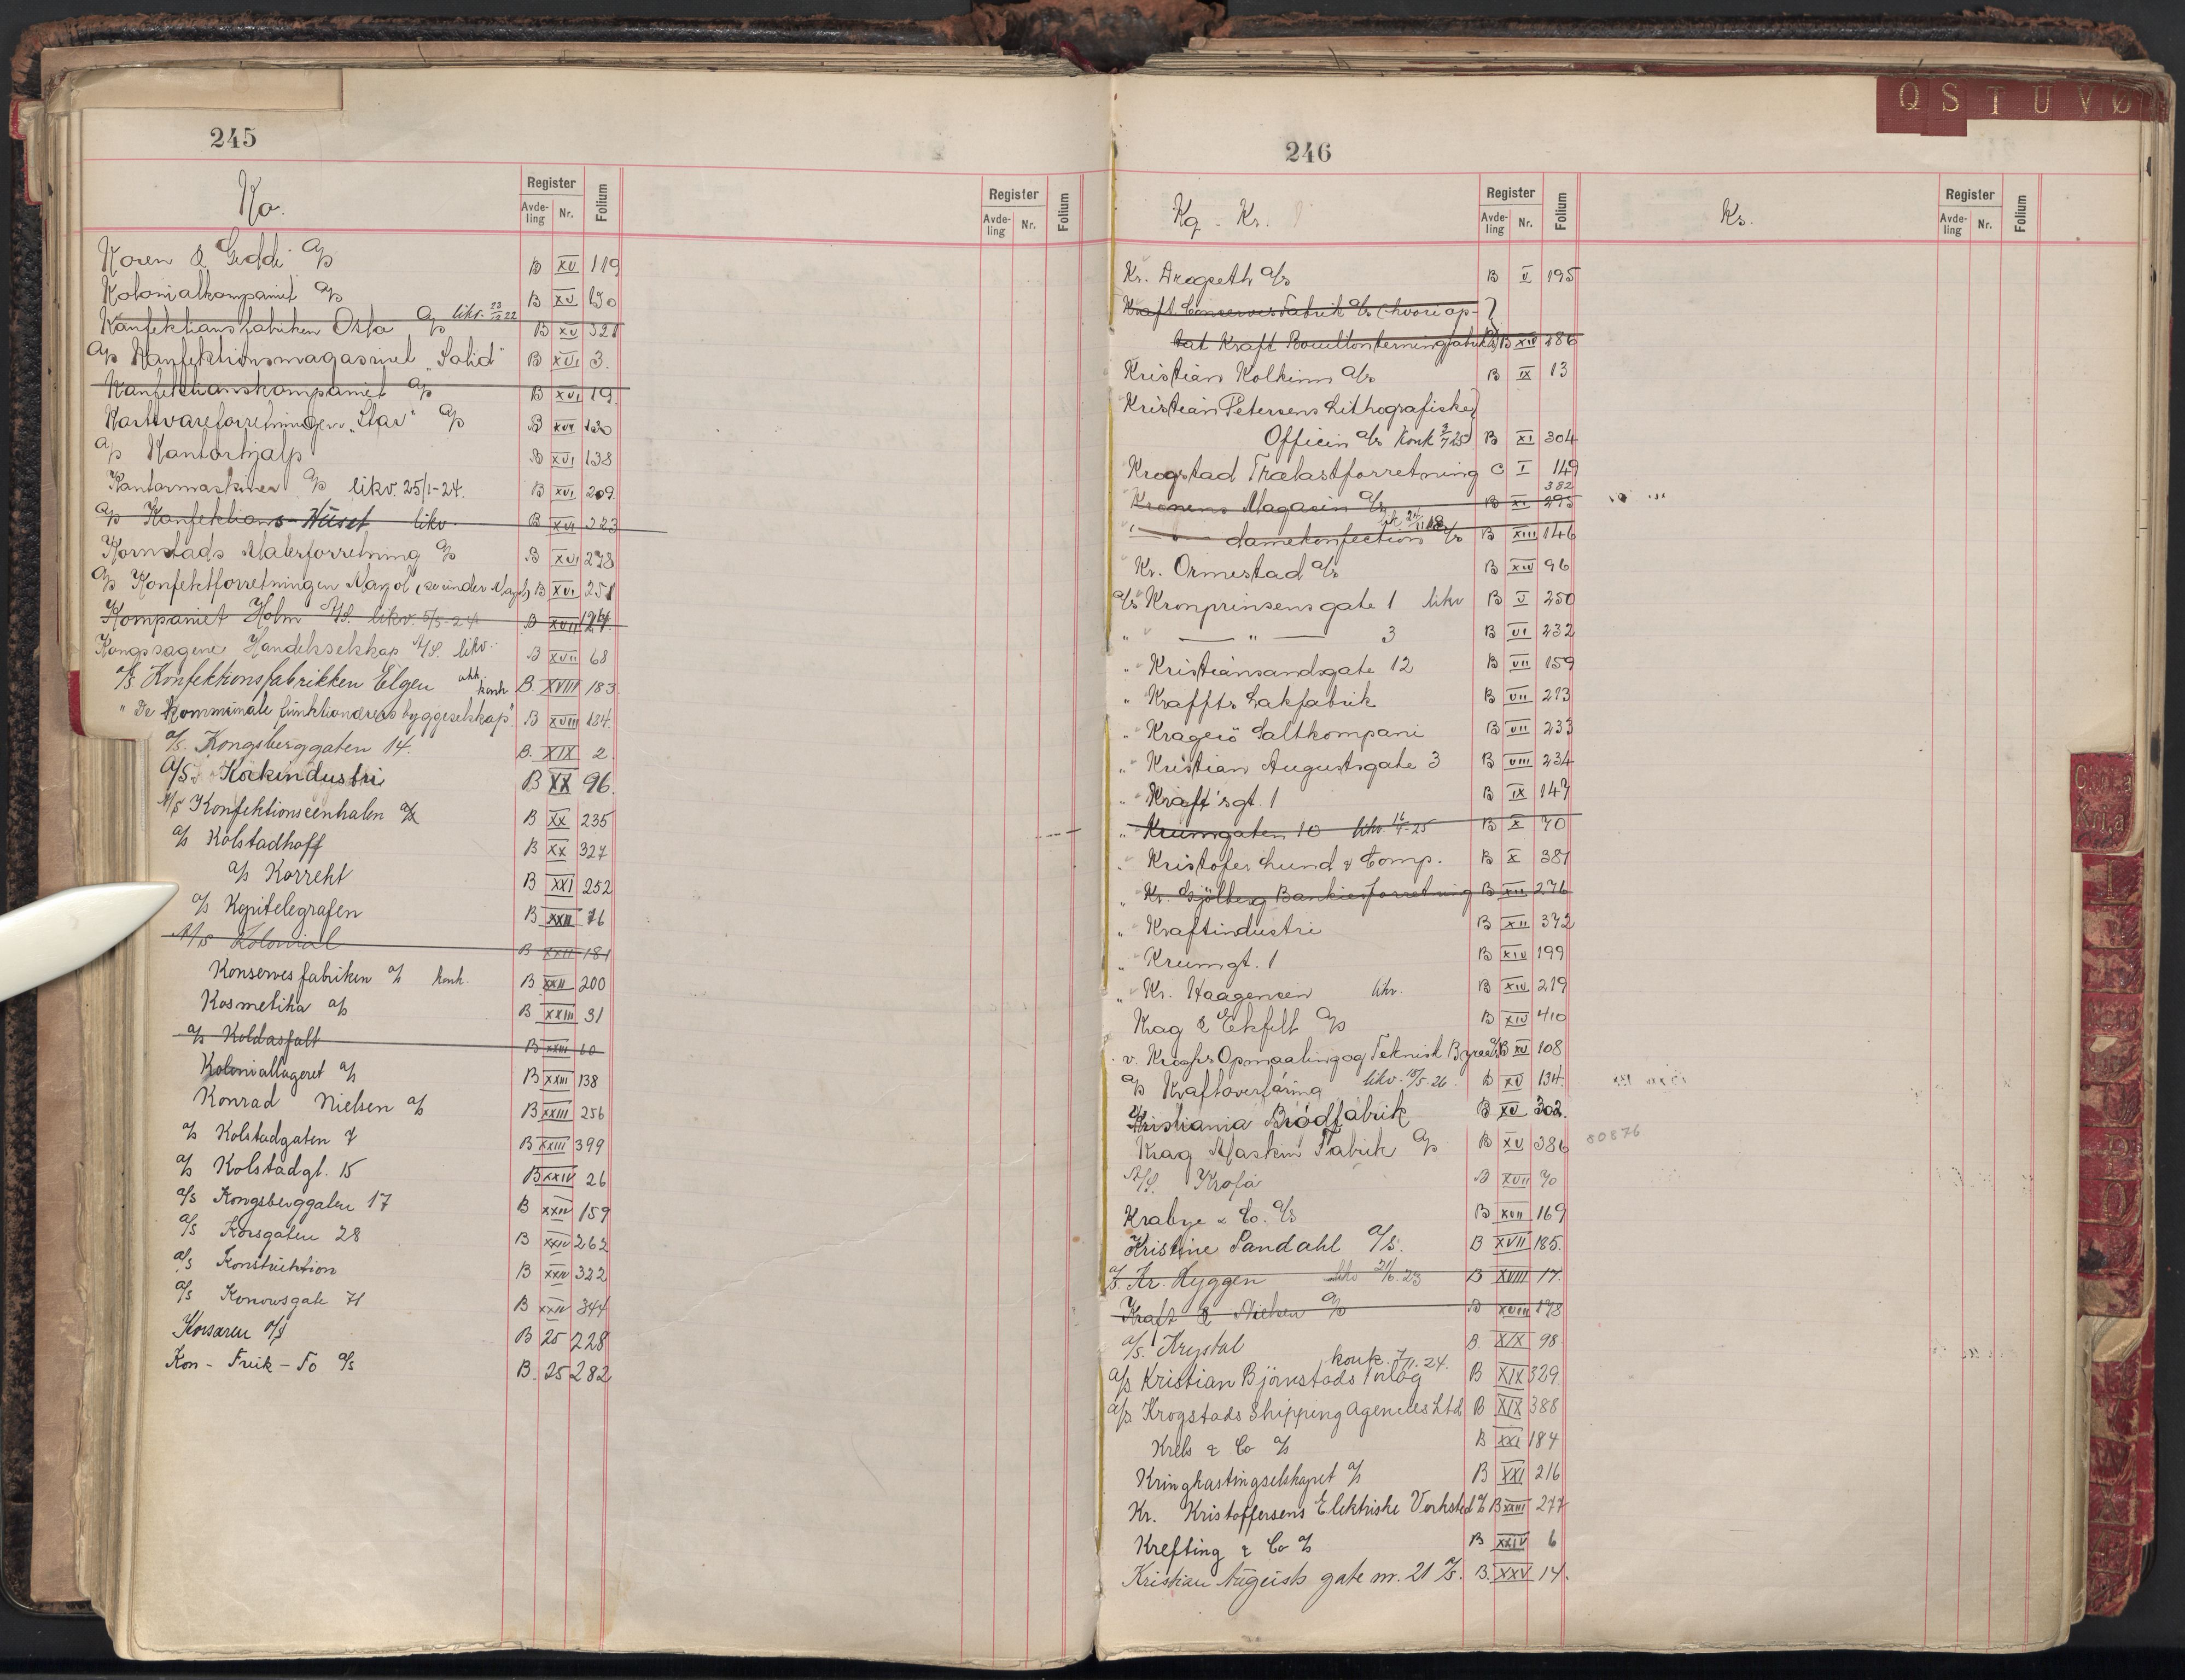 245
Ko.
Register
Avde-
ling
Nr.
Folium
Register
Avde-
ling
Nr.
Folium
Koren & Gedde A/S B XV 119
Kolonialkompaniet A/S B XV 150
Konfektionsfabriken Osta A/S likv. 23/12 22 B XV 321
A/S Konfektionsmagasinet "Solid" B XVI 3.
Konfektionskompaniet A/S B XVI 19.
Kortvareforretningen "Star" A/S B XVI 130
A/S Kontorhjælp B XVI 138
Kontormaskiner A/S likv. 25/1-24. B XVI 209
A/S Konfektions-Huset likv. B XVI 223
Kornstads Malerforretning A/S B XVI 278
A/S Konfektforretningen Marjol (se under B XVI 251
Kompaniet Holm A/S. likv. 5/5-24 B XVII
Kongssagene Handelsselskap A/S. likv. B XVII 68
A/S. Konfektionsfabrikken Elgen konk B. XVIII 183
" De kommunale funktionærers byggeselskap". B XVIII 184.
A/S. Kongsberggaten 14. B. XIX 2.
A/S. Kokindustri B XX 96.
A/S Konfektionscentralen B XX 235
A/S Kolstadhoff B XX 327
A/S Korrekt B XXI 252
A/S Kopitelegrafen B XXII 76
A/S Kolonial B XXII 181
Konservesfabriken A/S konk. B XXII 200
Kosmetika A/S B XXIII 31
A/S Koldasfalt B XXIII 60
Koloniallageret A/S B XXIII 138
Konrad Nielsen A/S B XXIII 256
A/S Kolstadgaten 7 B XXIII 399
A/S Kolstadgt. 15 B XXIV 26
A/S Kongsberggaten 17 B XXIV 159
A/S Korsgaten 28 B XXIV 262
A/S Konstruktion B XXIV 322
A/S Konowsgate 71 B XXIV 344
Korsaren A/S B 25 228
Kon-Frik-To A/S B. 25 282
246
Kq - Kr.
Register
Avde-
ling
Nr.
Folium
Kr.
Register
Avde-
ling
Nr.
Folium
Kr. Drogseth A/S B V 195
Kraft Conserves Fabrik A/S (hvori op-
tat Kraft Bouillonterningfabrik A/S) B XIV 286
Kristian Kolkinn A/S B IX 13
Kristian Petersens Lithografiske
Officin A/S Konk 3/7 25 B XI 304
Krogstad Trælastforretning C I 149
382
Kronens Magasin A/S B XI 295
" damekonfection A/S B XIII 146
Kr. Ormestad A/S B XIV 96
A/S Kronprinsensgate 1 likv B V 250
" — " — 3 B VI 232
" Kristiansandsgate 12 B VII 159
" Kraffts Lakfabrik B VII 213
" Kragerö Saltkompani B VII 233
" Kristian Augustsgate 3 B VIII 234
" Kraft'sgt. 1 B IX 147
" Krumgaten 10 likv. B X 70
" Kristofer Lund & Comp. B X 381
" Kr. Gjölberg Bankierforretning B XII 276
" Kraftindustri B XII 372
" Krumgt. 1 B XIV 199
" Kr. Haagensen likv. B XIV 219
Krag & Ekfelt A/S B XIV 410
v. Kroghs Opmaaling og Teknisk Byraa A/S B XV 108
A/S Kraftoverføring likv. 19/5-26. B XV 134.
Kristiania Brødfabrik B XV 302.
Krag Maskin Fabrik A/S B XV 386 80876
A/S. Krafa B XVII 70
Krabye & Co. A/S B XVII 169
Kristine Sandahl A/S. B XVII 185.
A/S Kr. Hyggen likv 21/6.23 B XVIII 17.
Kraft & Nielsen A/S B XVIII 178
A/S. Krystal B. XIX 98.
konk. 7/11.24.
A/S Kristian Björnstads Forlag B XIX 329
A/S Krogstads Shipping Agencies Ltd B XIX 388
Krebs & Co A/S B XXI 184
Kringkastingselskapet A/S B XXI 216
Kr. Kristoffersens Elektriske Verksted A/S B XXIII 277
Krefting & Co A/S B XXIV 6
Kristian Augusts gate nr. 21 A/S. B. XXV 14.
Q S T U V Ø